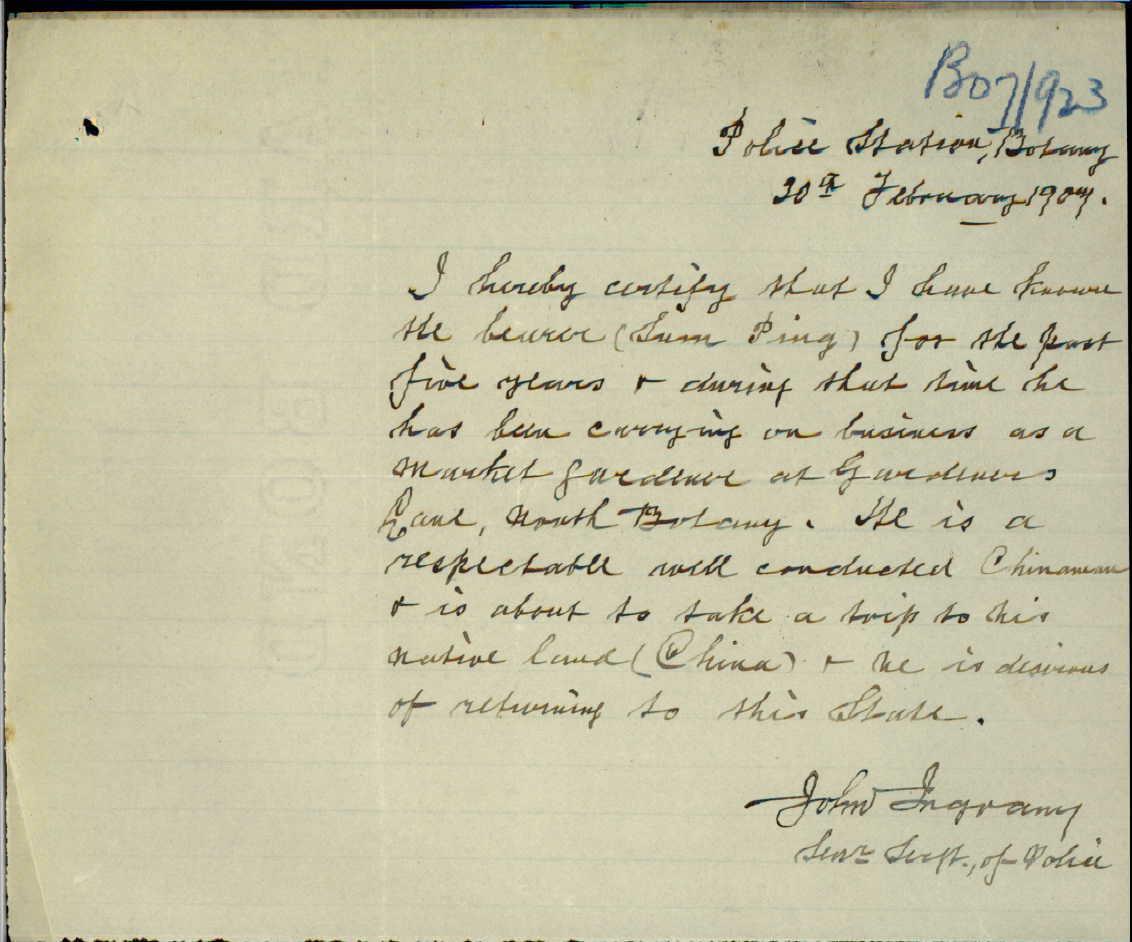 B07/923
Police Station, Botany
20th February 1907.
I hereby certify that I have known
the bearer (Sum Ping) for the past
five years & during that time he
has been carrying on business as a
Market gardener at Gardeners
Lane, North Botany. He is a
respectable well conducted Chinaman
& is about to take a trip to his
native land (China) & he is desirous
of returning to this State.
John Ingram
Senr Sergt., of Police